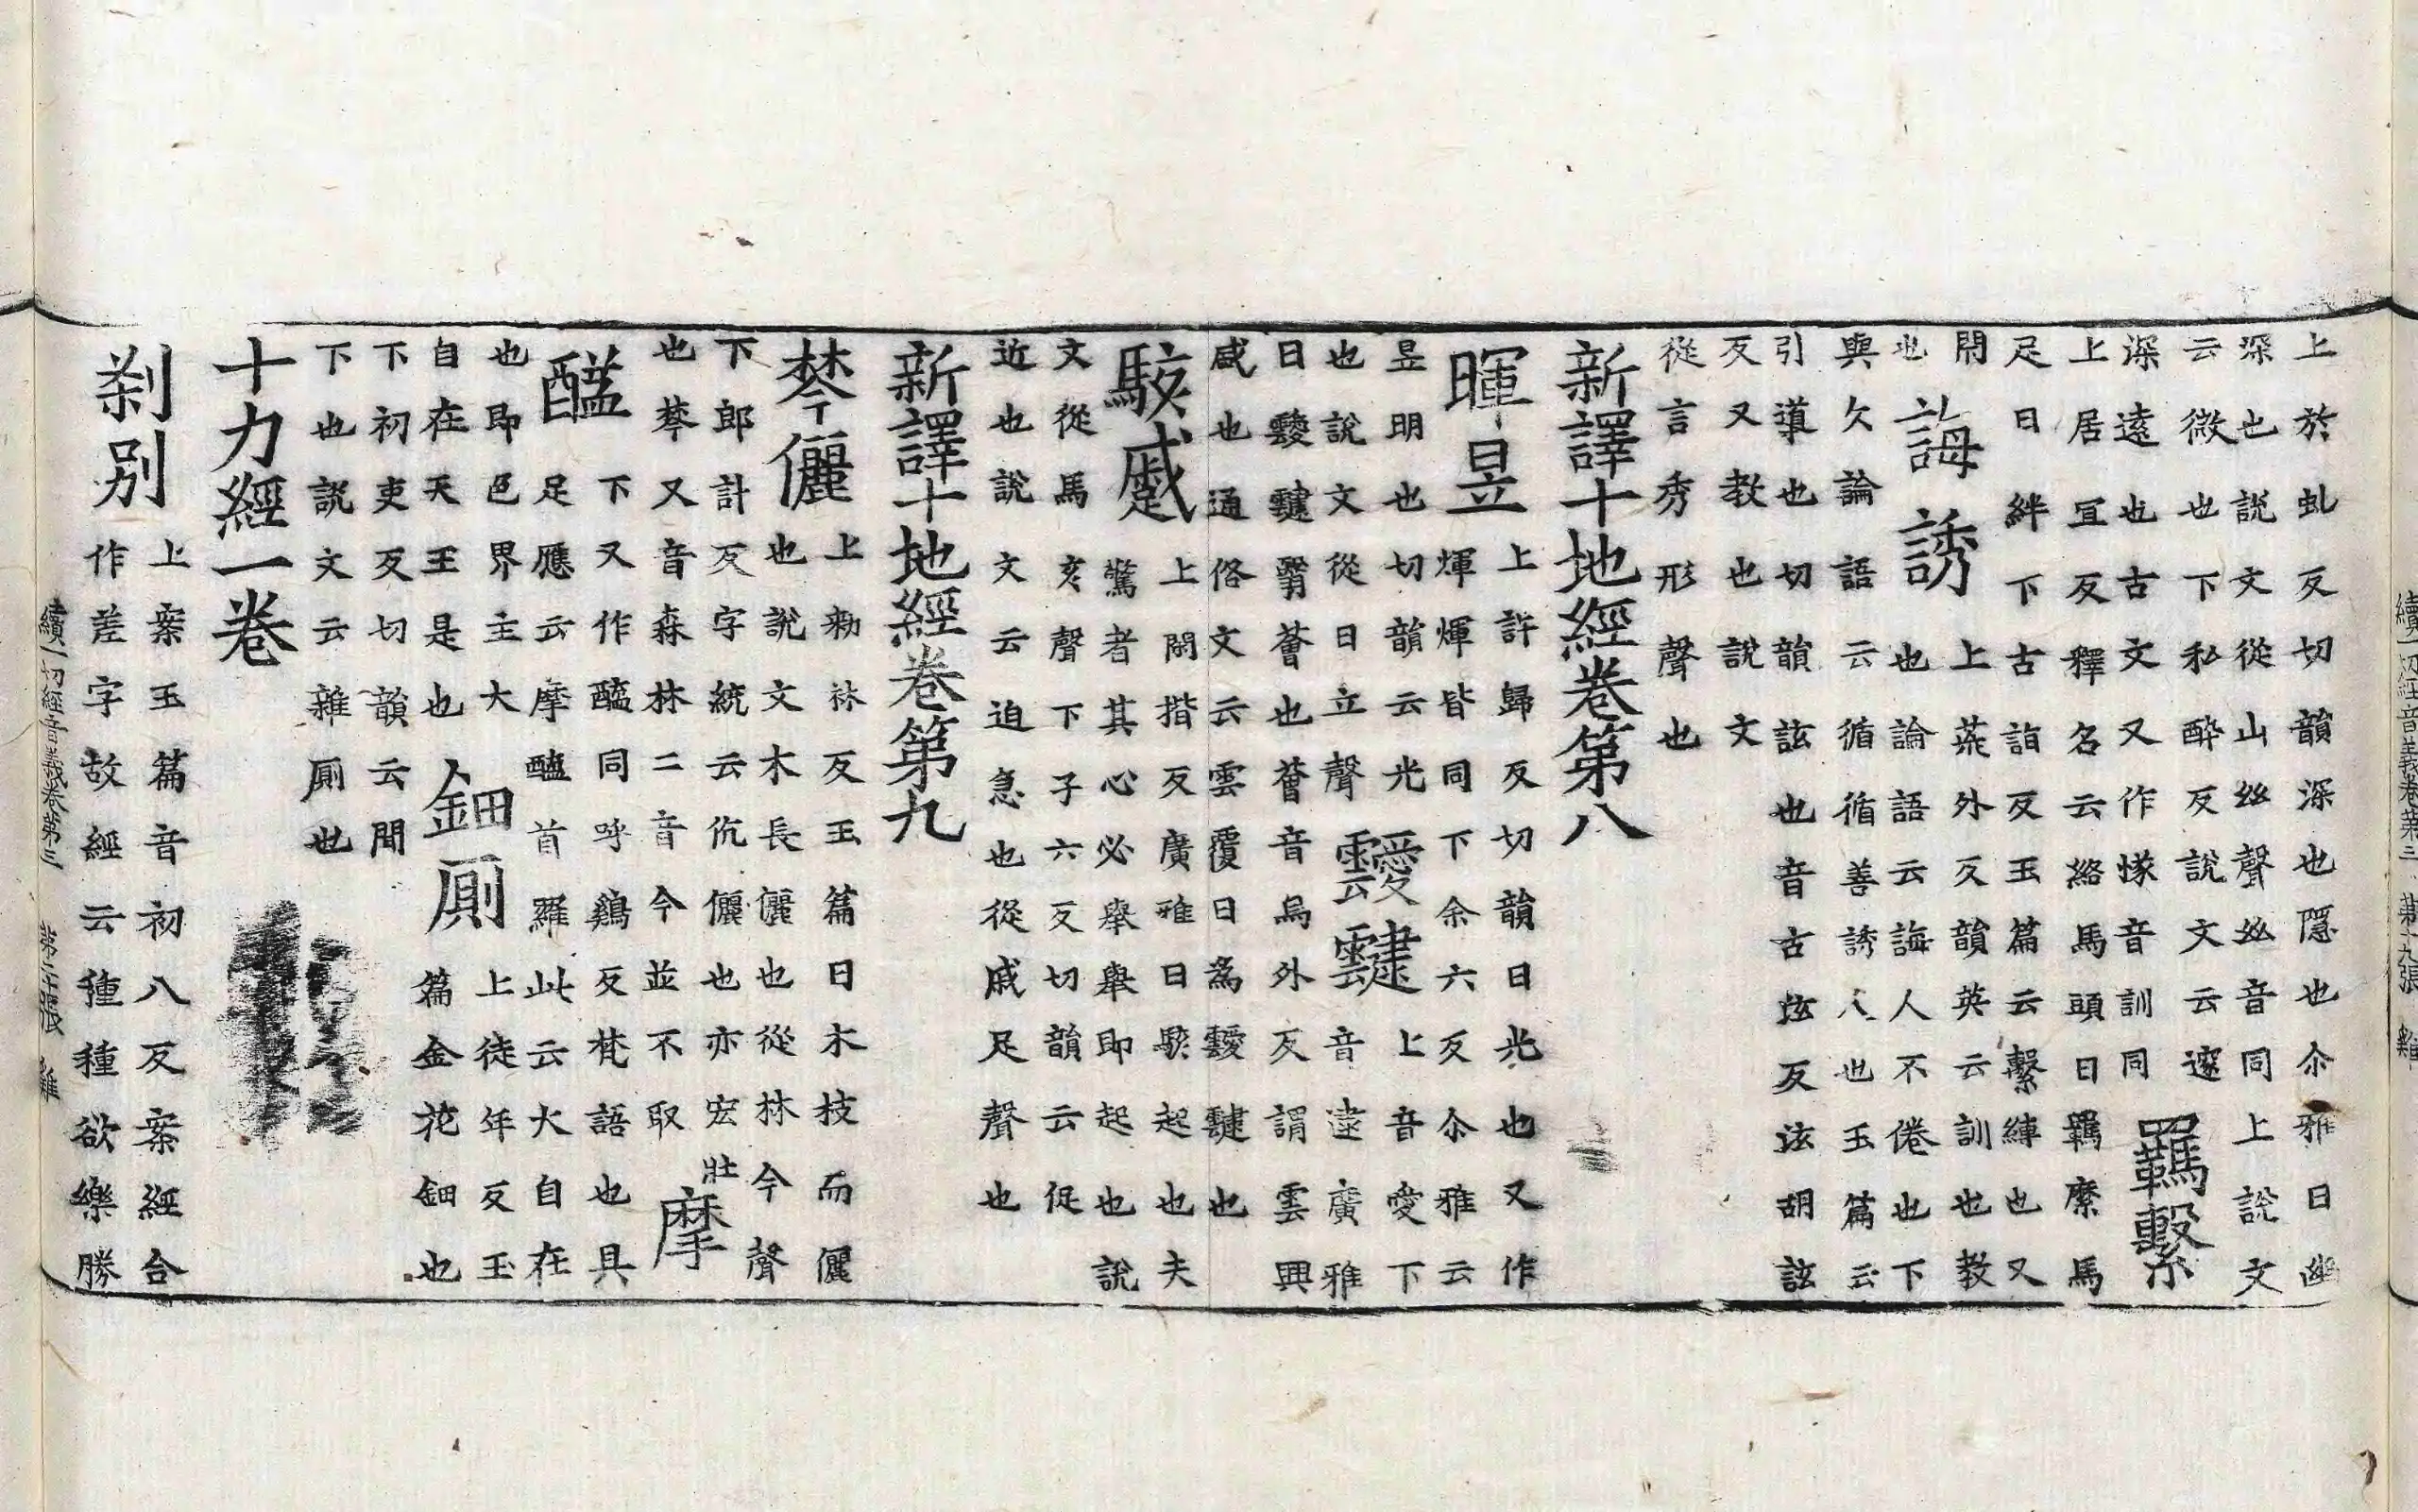 上於虬反切韻深也隱也尒雅曰幽
深也說文從山𢆶聲𢆶音同上說文
云微也下私醉反說文云邃
深遠也古文又作㥞音訓同
羈繫
上居宜反釋名云絡馬頭曰羈縻馬
足曰絆下古詣反玉篇云繫縺也又
閇
也
誨誘
上荒外反韻英云訓也教
也論語云誨人不倦也下
與久論語云循循善誘人也玉篇云
引導也切韻詃也音古炫反泫胡詃
反又教也說文
從言秀形聲也
新譯十地經卷第八
暉昱
上許歸反切韻曰光也又作
煇輝皆同下余六反尒雅云
昱明也切韻云光
也說文從日立聲
靉靆
上音愛下
音逮廣雅
曰靉靆翳薈也薈音烏外反謂雲興
盛也通俗文云雲覆日為靉靆也
駭蹙
上閑揩反廣雅曰駭起也夫
驚者其心必舉舉即起也說
文從馬亥聲下子六反切韻云促
近也說文云迫急也從戚足聲也
新譯十地經卷第九
棽儷
上勑林反玉篇曰木枝而儷
也說文木長儷也從林今聲
下郎計反字統云伉儷也亦宏壯
也棽又音森林二音今並不取
摩醯
下又作醓同呼鷄反梵語也具
足應云摩醯首羅此云大自在
也即色界主大
自在天王是也
鈿厠
上徒年反玉
篇金花鈿也
下初吏反切韻云間
下也說文云雜厠也
十力經一卷
剎別
上案玉篇音初八反案經合
作差字故經云種種欲樂勝
續一切經音義卷第三 第二十張 雞
續一切經音義卷第三 第十九張 雞